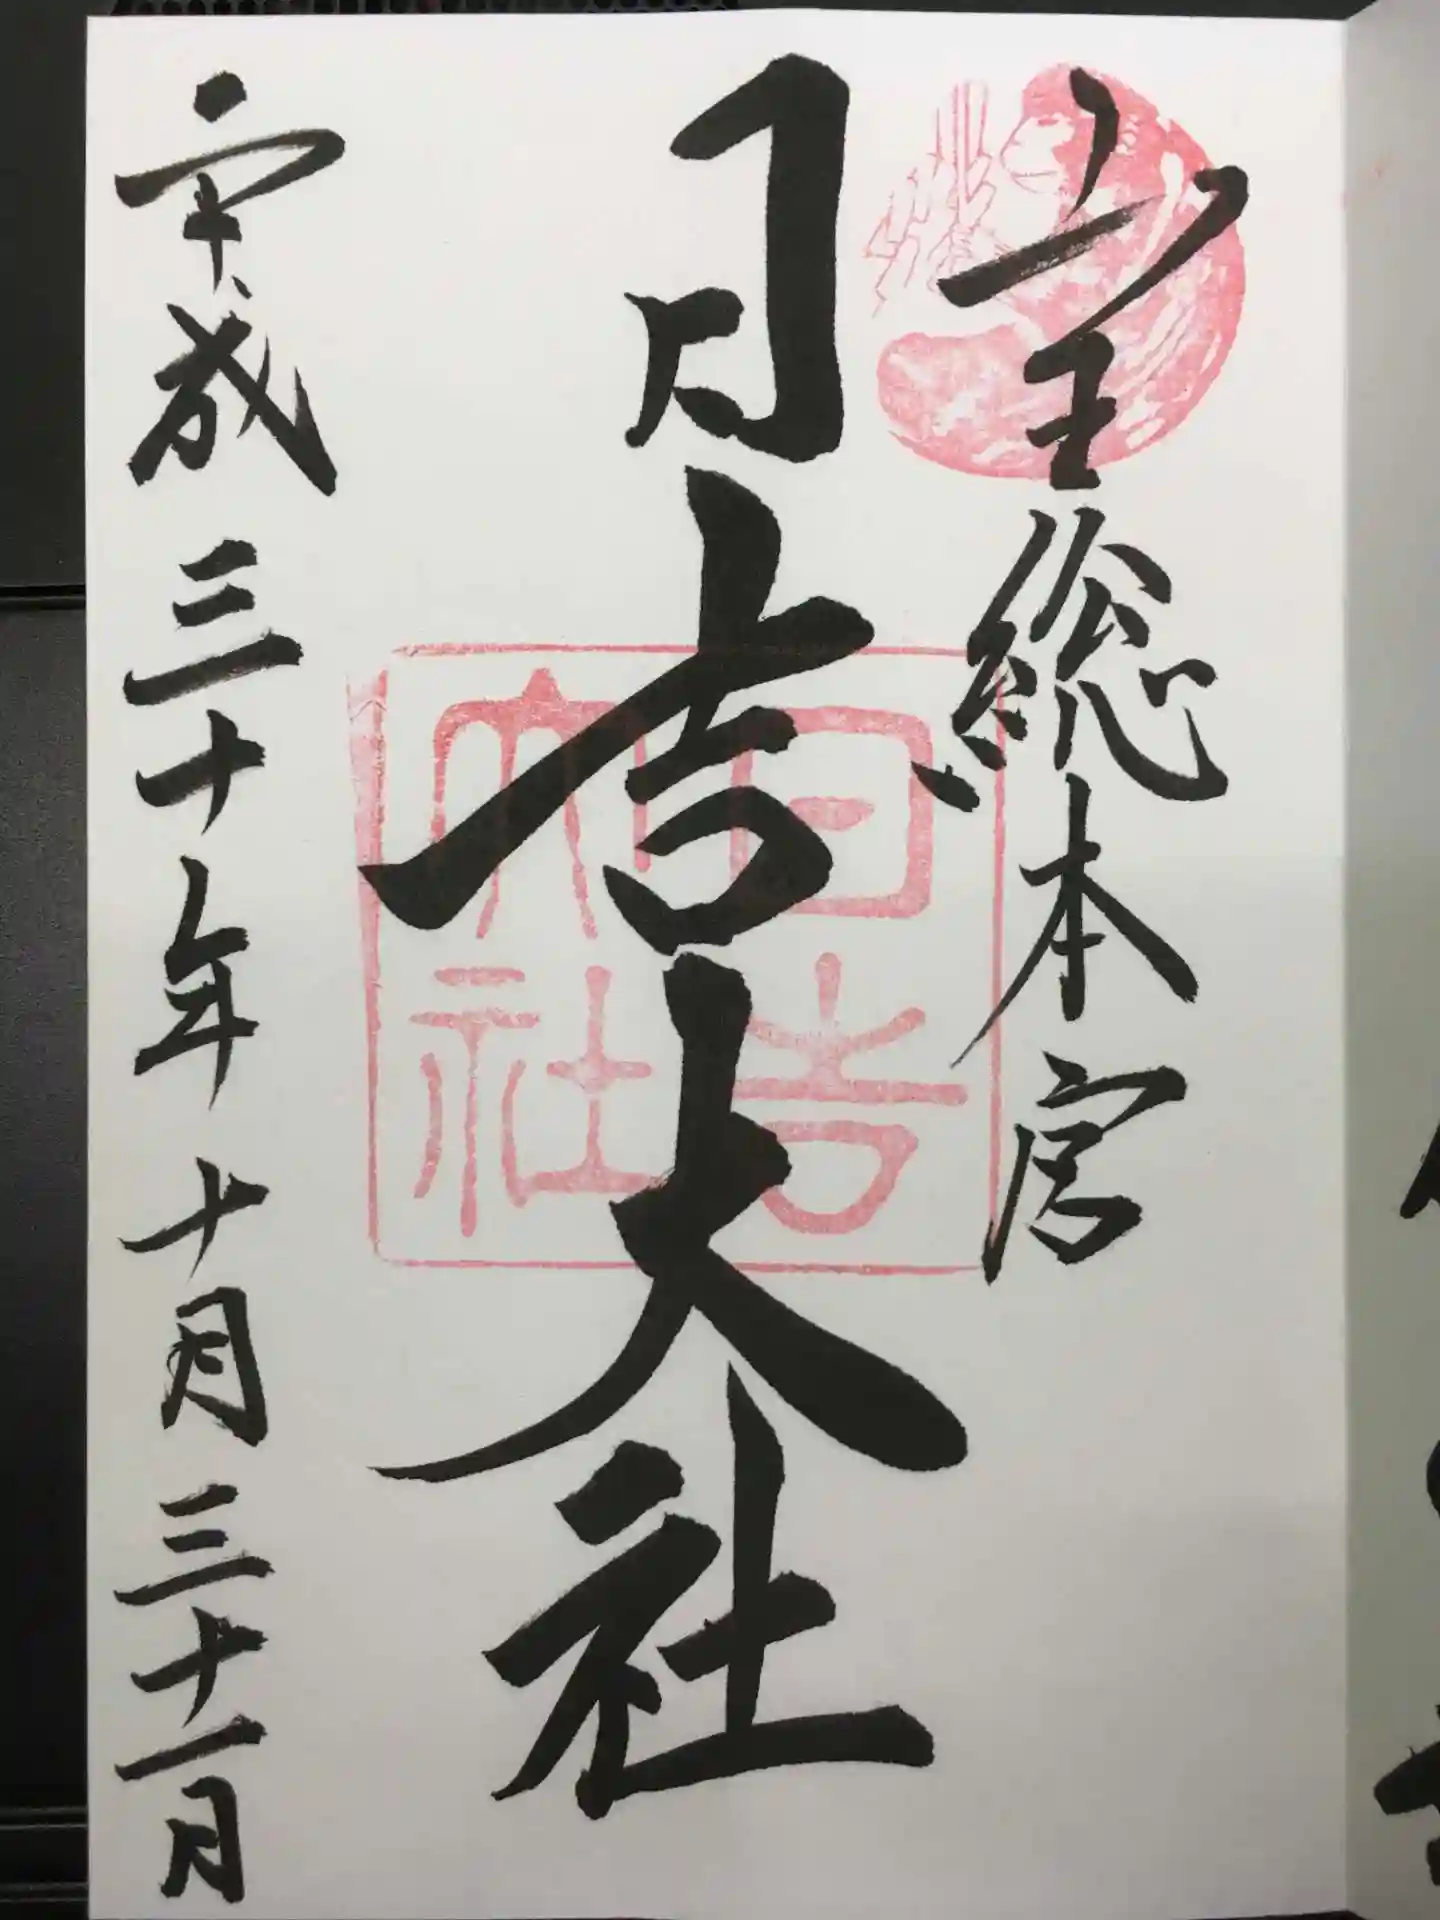 山王総本宮
日吉大社
日吉
大社
平成三十年十月三十一日